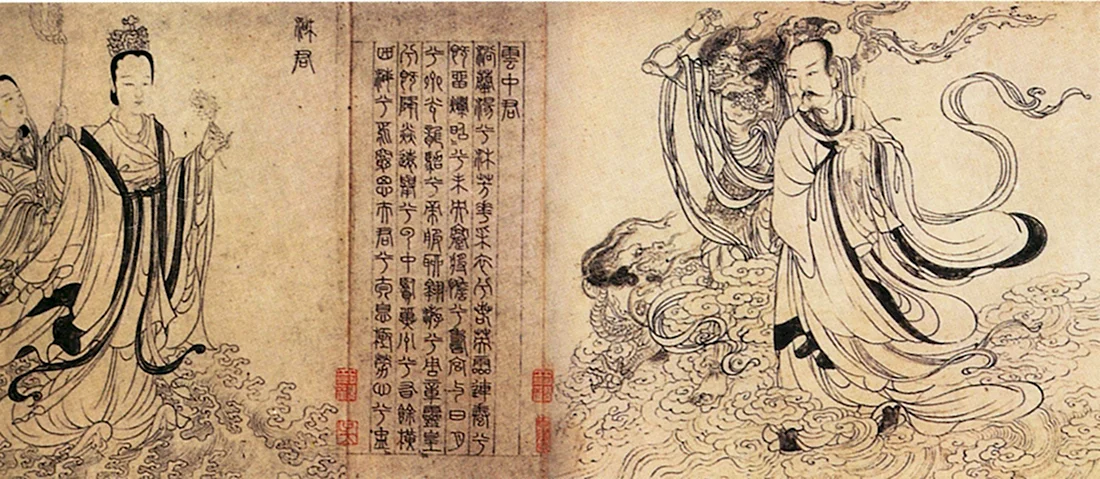 雲中君
浴蘭湯兮沐芳華采衣兮若英靈連蜷兮
既留爛昭兮未央蹇將憺兮壽宮與日月
兮齊光龍駕兮帝服聊翱遊兮周章靈皇
兮既降猋遠舉兮雲中覽冀州兮有餘橫
四海兮焉窮思夫君兮太息極勞心兮忡
湘君